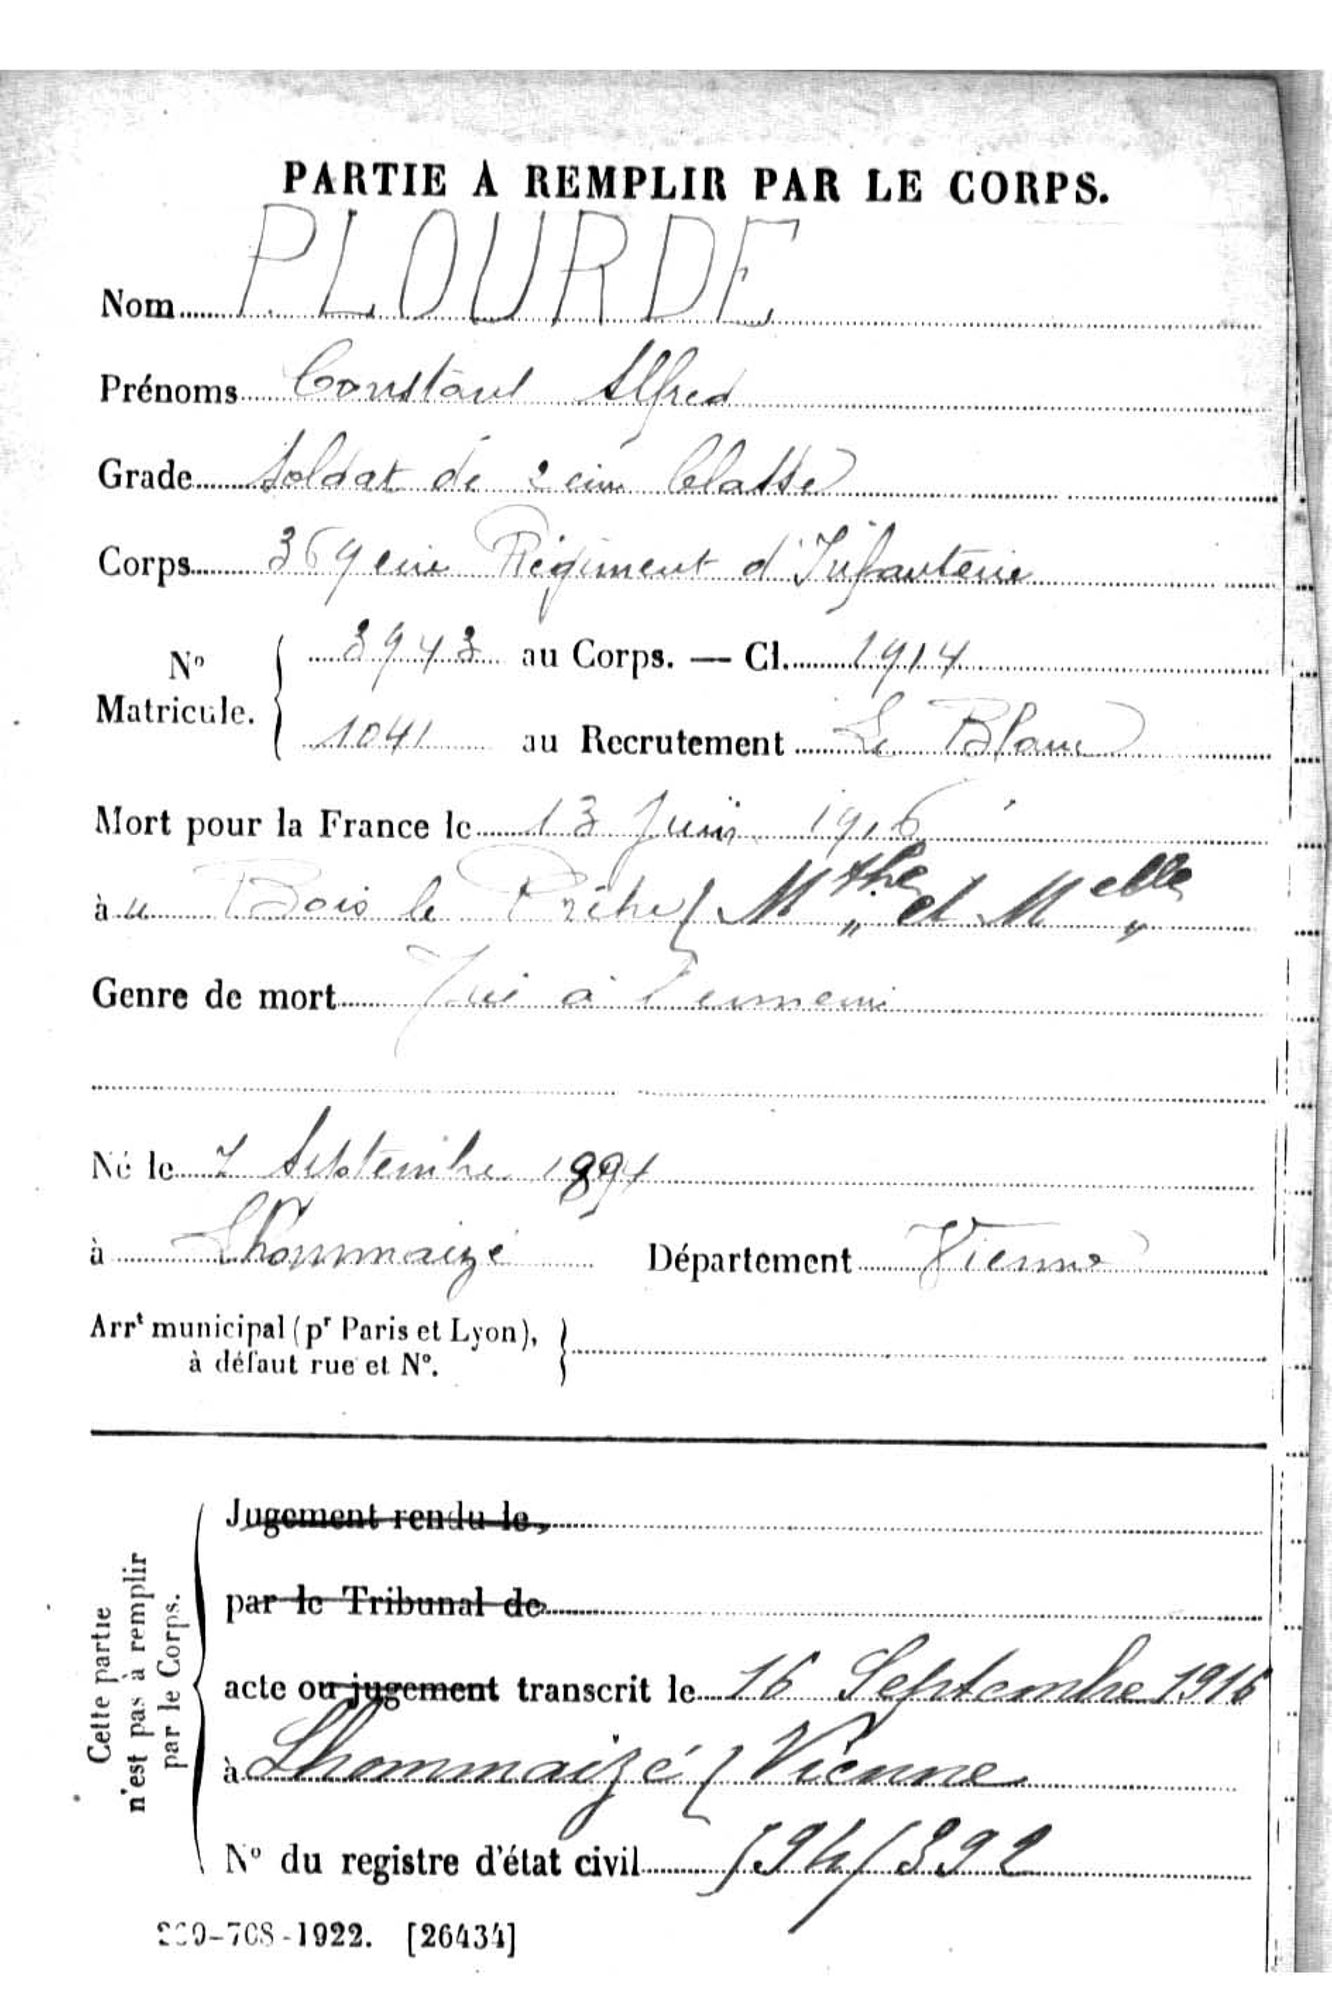 PARTIE A REMPLIR PAR LE CORPS.
Nom PLOURDE
Prénoms Constant Alfred
Grade Soldat de 2eme Classe
Corps 369eme Régiment d'Infanterie
No Matricule. 3943 au Corps. — Cl. 1914
1041 au Recrutement Le Blanc
Mort pour la France le 13 Juin 1916
à u Bois le Prêtre ( Mthe et Melle
Genre de mort Tué à l'ennemi
Né le 7 Septembre 1894
à Lhommaizé Département Vienne
Arrt municipal (pr Paris et Lyon),
à défaut rue et No.
Cette partie
n'est pas à remplir
par le Corps.
Jugement rendu le
par le Tribunal de
acte ou jugement transcrit le 16 Septembre 1916
à Lhommaizé ( Vienne
No du registre d'état civil 594/392
-708-1922. [26434]